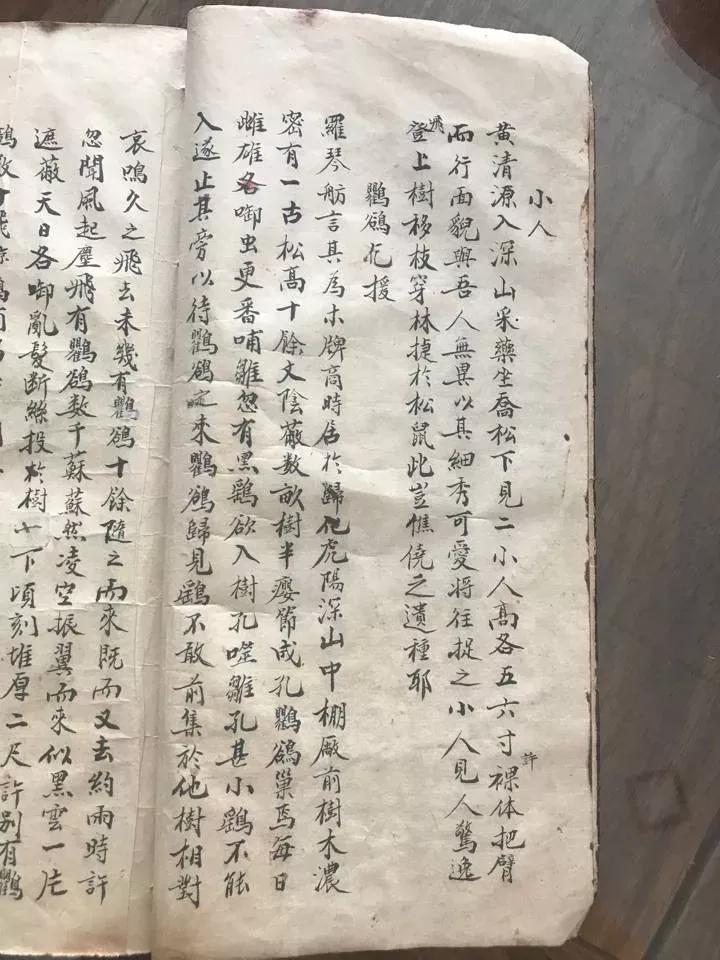 小人
黄清源入深山采藥坐喬松下見二小人髙各五六寸許裸体把臂
而行面貌與吾人無異以其細秀可愛將往捉之小人見人驚逸
飛登上樹移枝穿林捷於松鼠此豈僬僥之遺種耶
鸜鵒化援
羅琴舫言其為木牌商時居於歸化虎陽深山中棚厰前樹木濃
密有一古松髙十餘丈陰蔽数畝樹半癭節成孔鸜鵒巢焉每日
雌雄各啣虫更番哺雛忽有黑鷂欲入樹孔噬雛孔甚小鷂不能
入遂止其旁以待鸜鵒之來鸜鵒歸見鷂不敢前集於他樹相對
哀鳴久之飛去未幾有鸜鵒十餘隨之而來既而又去約兩時許
忽聞風起塵飛有鸜鵒数千蘇蘇然凌空振翼而來似黑雲一片
遮蔽天日各啣亂髮斷絲投於樹上下頃刻堆厚二尺許别有鸜